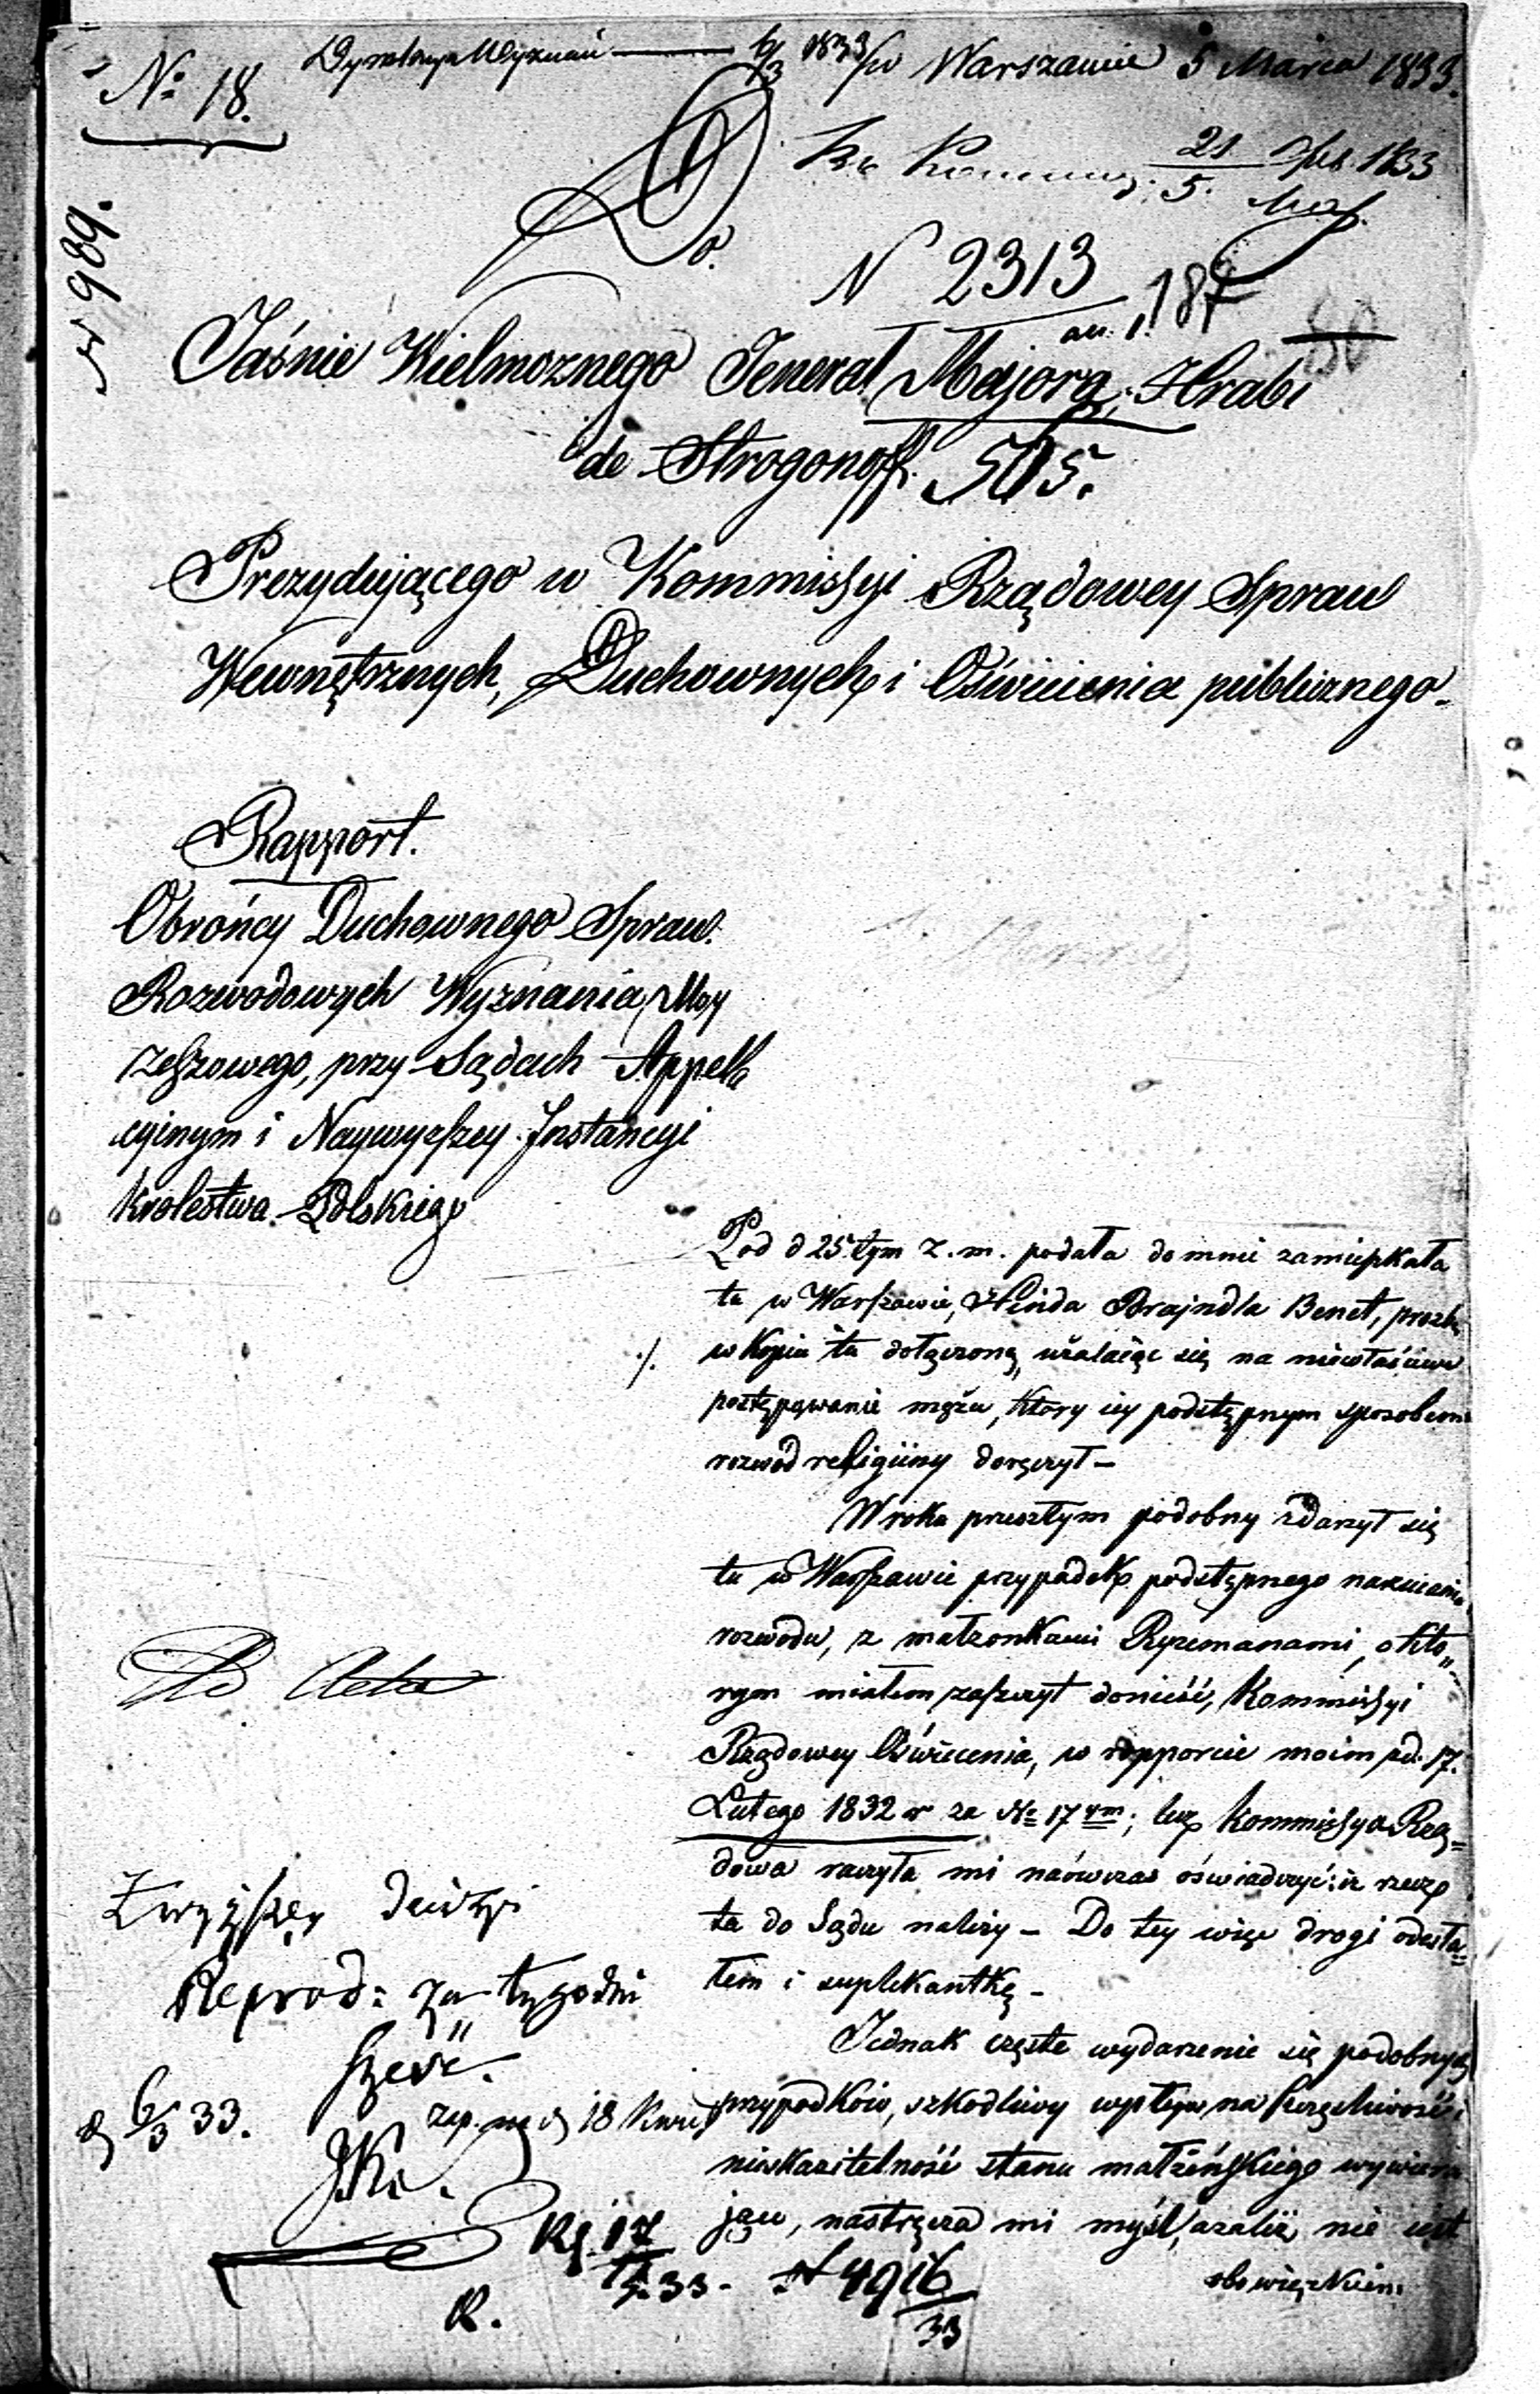 No 18.
Dyrekcya Wyznań — 6/3 1833 / w Warszawie 5 Marca 1833.
21/5 1833
N 989.
Do.
N 2313
an. 1. 187
80
Jaśnie Wielmożnego Jenerał Majora, Hrabi
de Strogonoff. 505.
Prezydującego w Kommissyi Rządowey Spraw
Wewnętrznych, Duchownych i Oświecenia publicznego.
Rapport.
Obrońcy Duchownego Spraw.
Rozwodowych Wyznania Moy
żeszowego, przy Sądach Appella
cyinym i Naywyższey Instancyi
Krolestwa Polskiego
Pod d 25tym z. m. podała do mnie zamieszkała
tu w Warszawie, Hinda Brajndla Benet, prozbę
./. w Kopii tu dołączoną, użalaiąc się na niewłaściwe
postępowanie męża, ktory iey podstępnym sposobem
rozwod religiiny doręczył –
W roku przeszłym podobny zdarzył się
tu w Warszawie przypadek podstępnego narzucania
rozwodu, z małżonkami Ryzemanami, o któ„
rym miałem zaszczyt donieść, Kommissyi
Rządowey Oświecenia, w rapporcie moim pd. 17.
Lutego 1832 r za No 17ym; lecz Kommissya Rzą=
dowa raczyła mi naówczas oświadczyć: iż rzecz
ta do Sądu należy – Do tey więc drogi odesła=
łem i suplikantkę –
Jednak częste wydarzenie się podobnych
przypadków, szkodliwy wpływ na szczęśliwość i
nieskazitelność stanu małżeńskiego wywiera
jąc, nastręcza mi myśl, azaliż, nie iest
obowiązkiem
Ad Acta
Z wyższey decizyi
Reprod: za tygodni
sześć.
d 6/3 33.
zap. na d 18 Kwie
JKo.
Rj. 17
33 – N 4916/33
R.